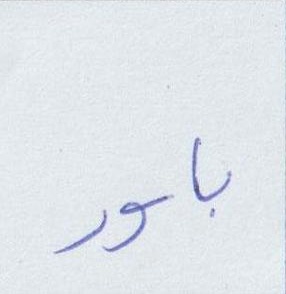 باور